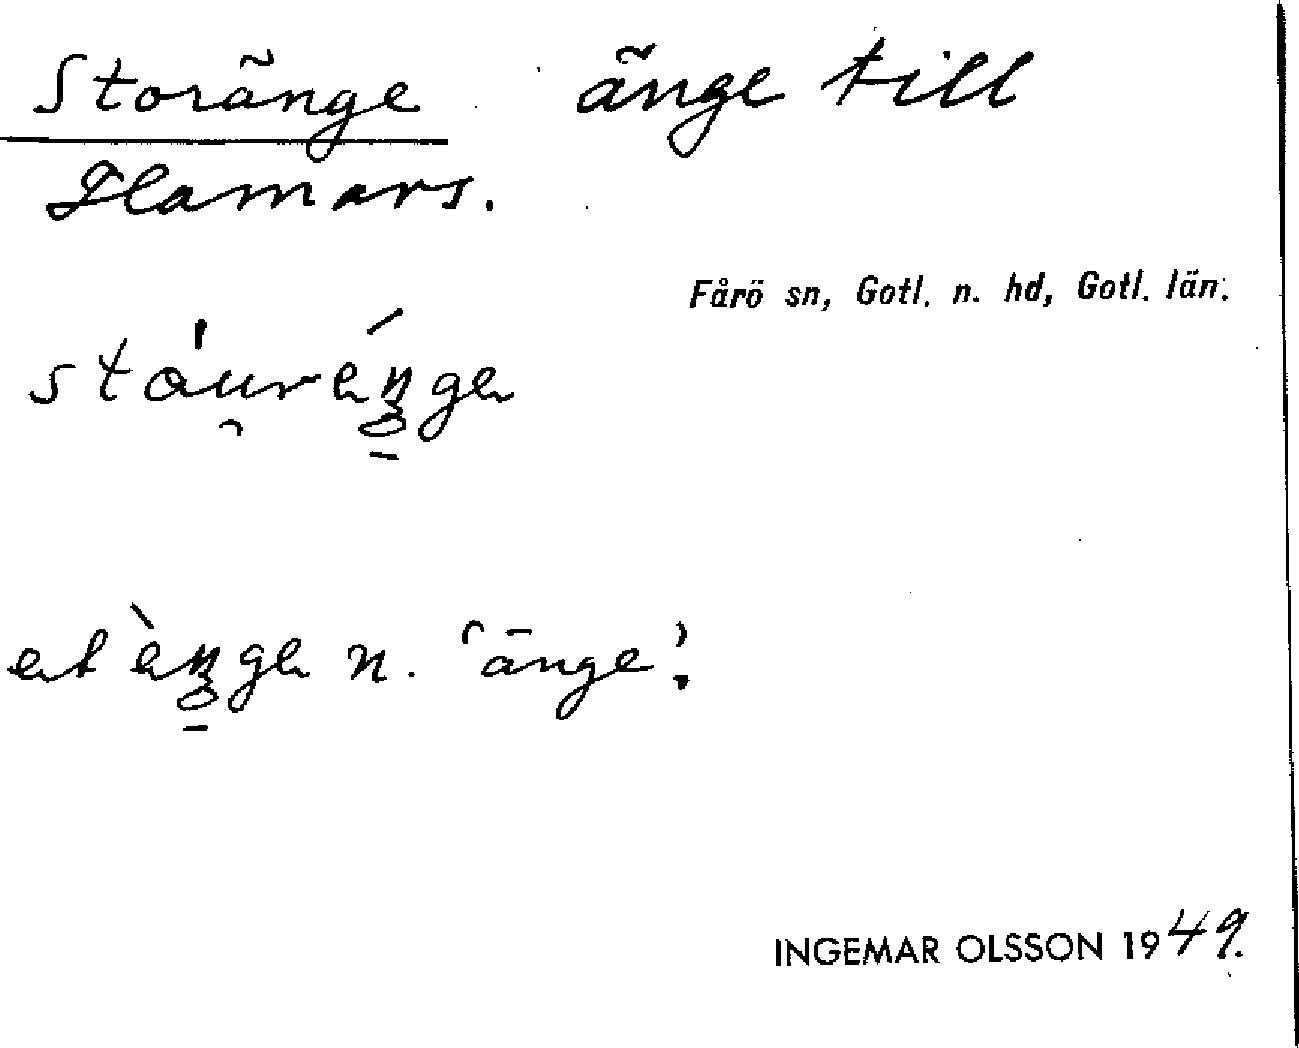 Storänge änge till
Hamars.
Fårö sn, Gotl. n. hd, Gotl. län.
stáurénge
et ènge n. 'änge'.
INGEMAR OLSSON 1949.